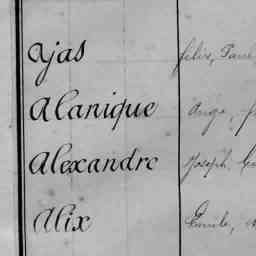 Ajas Félix, Paul
Alanique Ange,
Alexandre Joseph,
Alix Emile,